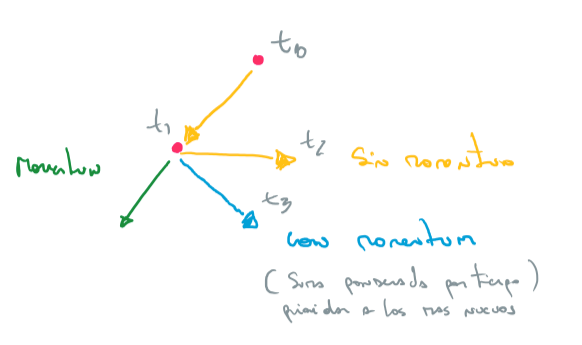 t0
t1
t2
Sin momentum
Momentum
t3
Con momentum
(Suma ponderada por tiempo)
prioridad a los mas nuevos